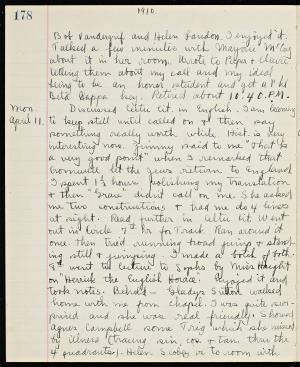 178
1910.
Bob Vandergrif and Helen Landon. I enjoyed it.
Talked a few minutes with Mayorie McCoy
about it in her room. Wrote to Papa & Claire
telling them about my call and my ideal
being to be an honor student and get a Phi
Beta Kappa key. Retired about 10:40 P.M.
Mon. Discussed little lit. in English. I am learning
April 11. to keep still until called on & then say
something really worth while. Hist. is very
interesting now. Jimmy said to me "That is
a very good point" when I remarked that
Cromwell let the Jews return to England
I spent 1½ hours polishing my translation
& then "Grau" didn't call on me. She asked
me two constructions & had me do 4 lines
at sight. Read further in Celtic lit. Went
out in circle 7th hr for Track. Ran around it
once. Then tried running broad jump & stand-
ing still & jumping. I made a botch of both.
8th went to lecture to Sophs by Miss Haight
on "Herrick the English Horace". Enjoyed it and
took notes. Behold – Gladys Sutton walked
home with me from chapel. I was quite sur-
prised and she was real friendly. I showed
Agnes Campbell some Trig which she missed
by illness (tracing sin, cos & tan. thru the
4 quadrants). Helen Scobey or to room with